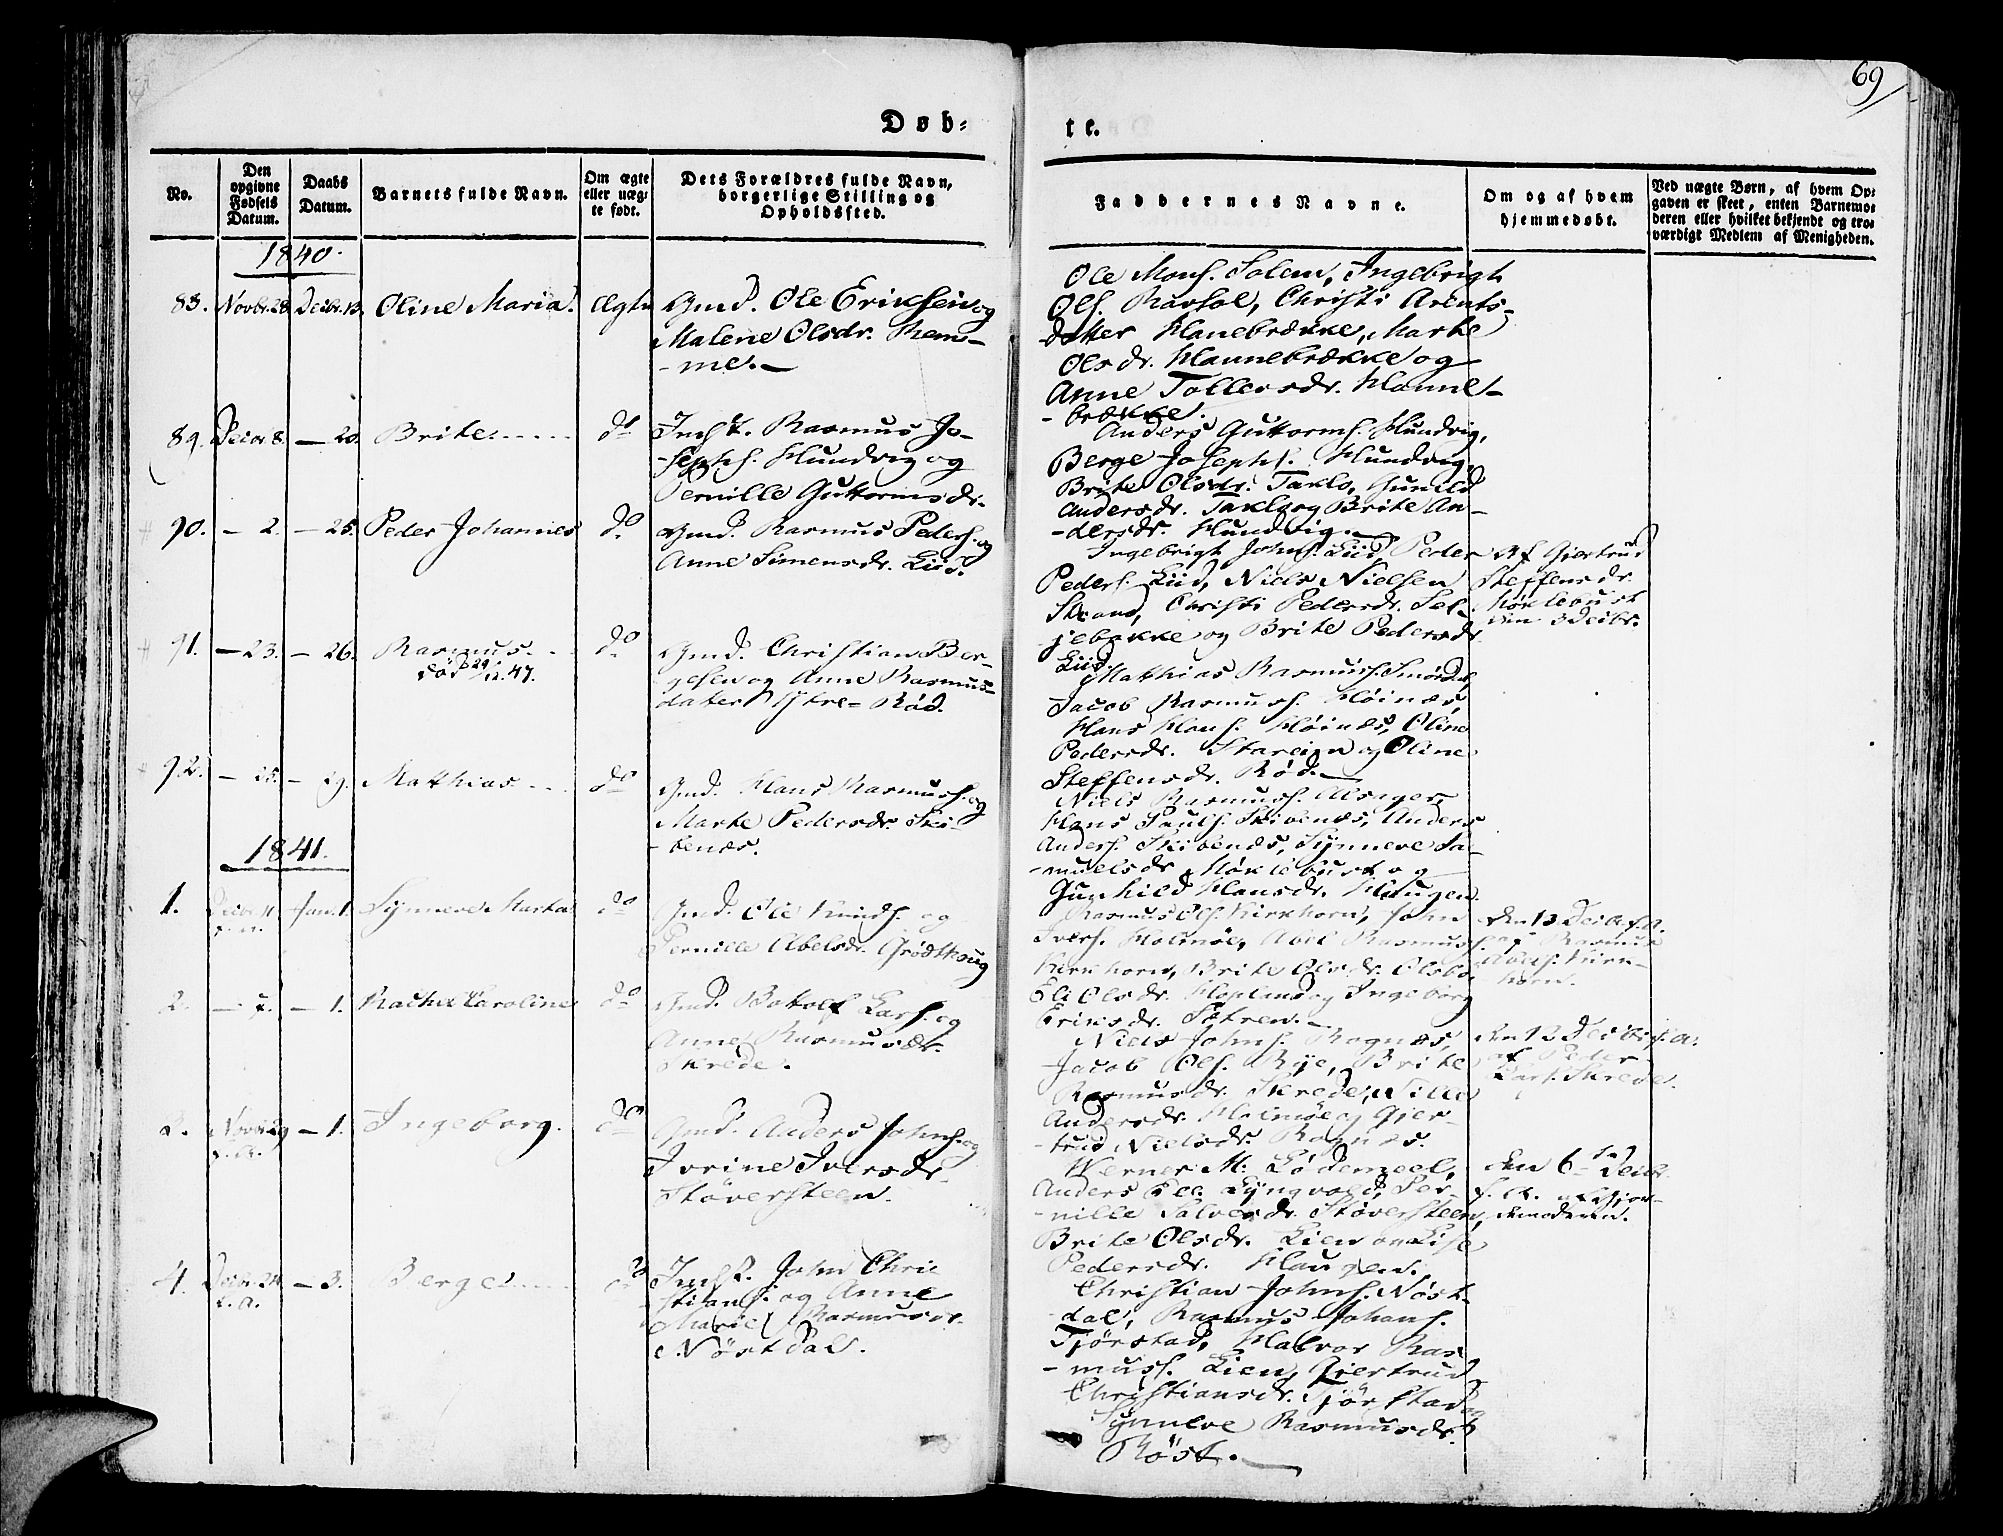 69
Døb-
te.
No.
Den opgivne Fødsels Datum.
Daabs Datum.
Barnets fulde Navn.
Om ægte eller uægte født.
Dets Forældres fulde Navn, borgerlige Stilling og Opholdssted.
Faddernes Navne.
Om og af hvem hjemmedøbt.
Ved uægte Børn, af hvem Opgaven er skeet, enten Barnemoderen eller hvilket bekjendt og troværdigt Medlem af Menigheden.
1840.
83. Novbr. 28 Decbr. 13. Oline Maria. Ægte Gmd. Ole Eriksen og
Malene Olsdr. Ram-
-me.-
Ole Mons. Solem, Ingebrigt
Ols. Ravsol, Christi Arents-
datter Hanebrække, Marte
Olsdr. Hannebrække og
Anne Tollersdr. Hanne-
-brække.
89. Decbr 8. - 20. Brite. do Indst. Rasmus Jo-
-sephs. Hundvig og
Pernille Guttormsdr.
Anders Guttorms. Hundvig,
Berge Josephs. Hundvig,
Brite Olsdr. Taklo, Gunild
Andersdr. Taklo og Brite An-
-dersdr. Hundvig.
90. - 2. - 25. Peder Johannes do Gmd. Rasmus Peders. og
Anne Simensdr. Liid.
Ingebrigt Johns. Liid, Peder
Peders. Liid, Niels Nielsen
Strand, Christi Pedersdr. Sel-
jebakke og Brite Pedersdr.
Liid.
Af Gjertrud
Steffensdr.
Høklebust
den 3 Decbr.
91. - 23. - 26. Rasmus. do Gmd. Christian Ber-
død 29/12.47.
gesen og Anne Rasmus-
datter Ytre-Rød.
Matthias Rasmuss. Smørdal,
Jacob Rasmuss. Høinæs,
Hans Hans. Høinæs, Oline
Pedersdr. Stareim og Oline
Steffensdr. Rød.
92. - 25. - 29. Matthias. do Gmd. Hans Rasmuss. og
Marte Pedersdr. Ski-
-benæs.
Niels Rasmuss. Alsager,
Hans Pauls. Skibenæs, Anders
Anders. Skibenæs, Synneve Sa-
-muelsdr. Høklebust og
Gunhild Hansdr. Haugen.
1841.
1. Decbr. 11 Jan. 1. Synneve Marta do Gmd. Ole Knuds. og
f. A.
Pernille Abelsdr. Grødthoug
Rasmus Ols. Kirkhorn, John
Ivers. Holmøe, Abel Rasmuss.
Kirkhorn, Brite Olsdr. Olsbø,
Eli Olsdr. Hopland og Ingeborg
Eriksdr. Sætren.
den 13 Dec. f. A.
af Rasmus
Abels. Kirk-
horn.
2. - 7. - 1. Rachel Caroline do Gmd. Botolf Lars. og
Anne Rasmusdr.
Skrede.
Niels Johns. Rognæs,
Jacob Ols. Rye, Brite
Rasmusdr. Skrede, Nille
Andersdr. Holmøe og Gjer-
-trud Nielsdr. Rognæs.
den 12 Decbr. f. A.
af Peder
Lars. Skrede.
3. Novbr. 29 - 1. Ingeborg. do Gmd. Anders Johns. og
f. A.
Ivrine Iversdr.
Støversteen.
Werner M. Lødemeel,
Anders Lyngvold, Per-
-nille Salvesdr. Støversteen,
Brite Olsdr. Lien og Lise
Pedersdr. Haugen.
den 6te Decbr.
f. A. af Gjor-
demoderen.
4. Decbr. 24. - 3. Berge. do Indst. John Chri-
f. A.
-stians. og Anne
Marie Rasmusdr.
Nøstdal.
Christian Johns. Nøst-
-dal, Rasmus Johans.
Tjørstad, Halvor Ras-
-muss. Lien, Gjertrud
Christiansdr. Tjørstad og
Synneve Rasmusdr.
Røst.